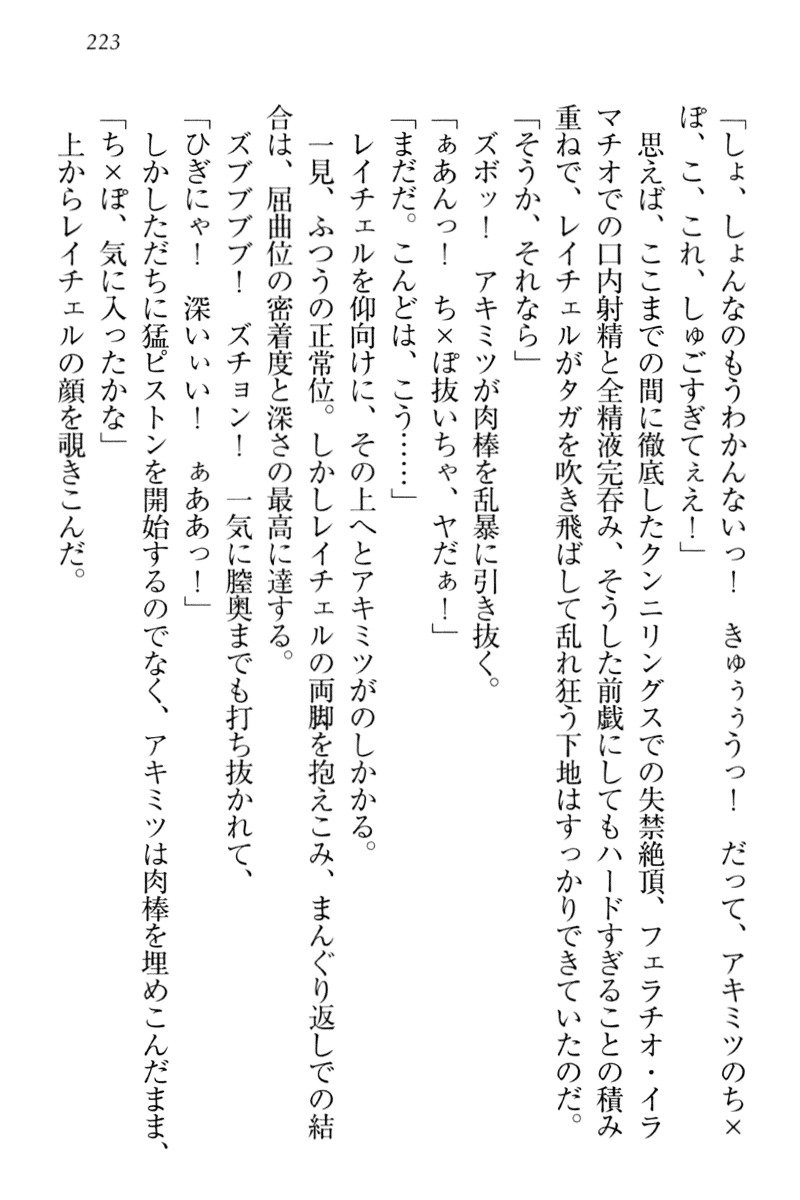 223
「しょ、しょんなのもうわかんないっ！　きゅぅぅうっ！　だって、アキミツのち×
ぽ、こ、これ、しゅごすぎてぇえ！」
　思えば、ここまでの間に徹底したクンニリングスでの失禁絶頂、フェラチオ・イラ
マチオでの口内射精と全精液完呑み、そうした前戯にしてもハードすぎることの積み
重ねで、レイチェルがタガを吹き飛ばして乱れ狂う下地はすっかりできていたのだ。
「そうか、それなら」
　ズボッ！　アキミツが肉棒を乱暴に引き抜く。
「ぁあんっ！　ち×ぽ抜いちゃ、ヤだぁ！」
「まだだ。こんどは、こう……」
　レイチェルを仰向けに、その上へとアキミツがのしかかる。
　一見、ふつうの正常位。しかしレイチェルの両脚を抱えこみ、まんぐり返しでの結
合は、屈曲位の密着度と深さの最高に達する。
　ズブブブブ！　ズチョン！　一気に膣奥までも打ち抜かれて、
「ひぎにゃ！　深いぃい！　ぁああっ！」
　しかしただちに猛ピストンを開始するのでなく、アキミツは肉棒を埋めこんだまま、
「ち×ぽ、気に入ったかな」
　上からレイチェルの顔を覗きこんだ。